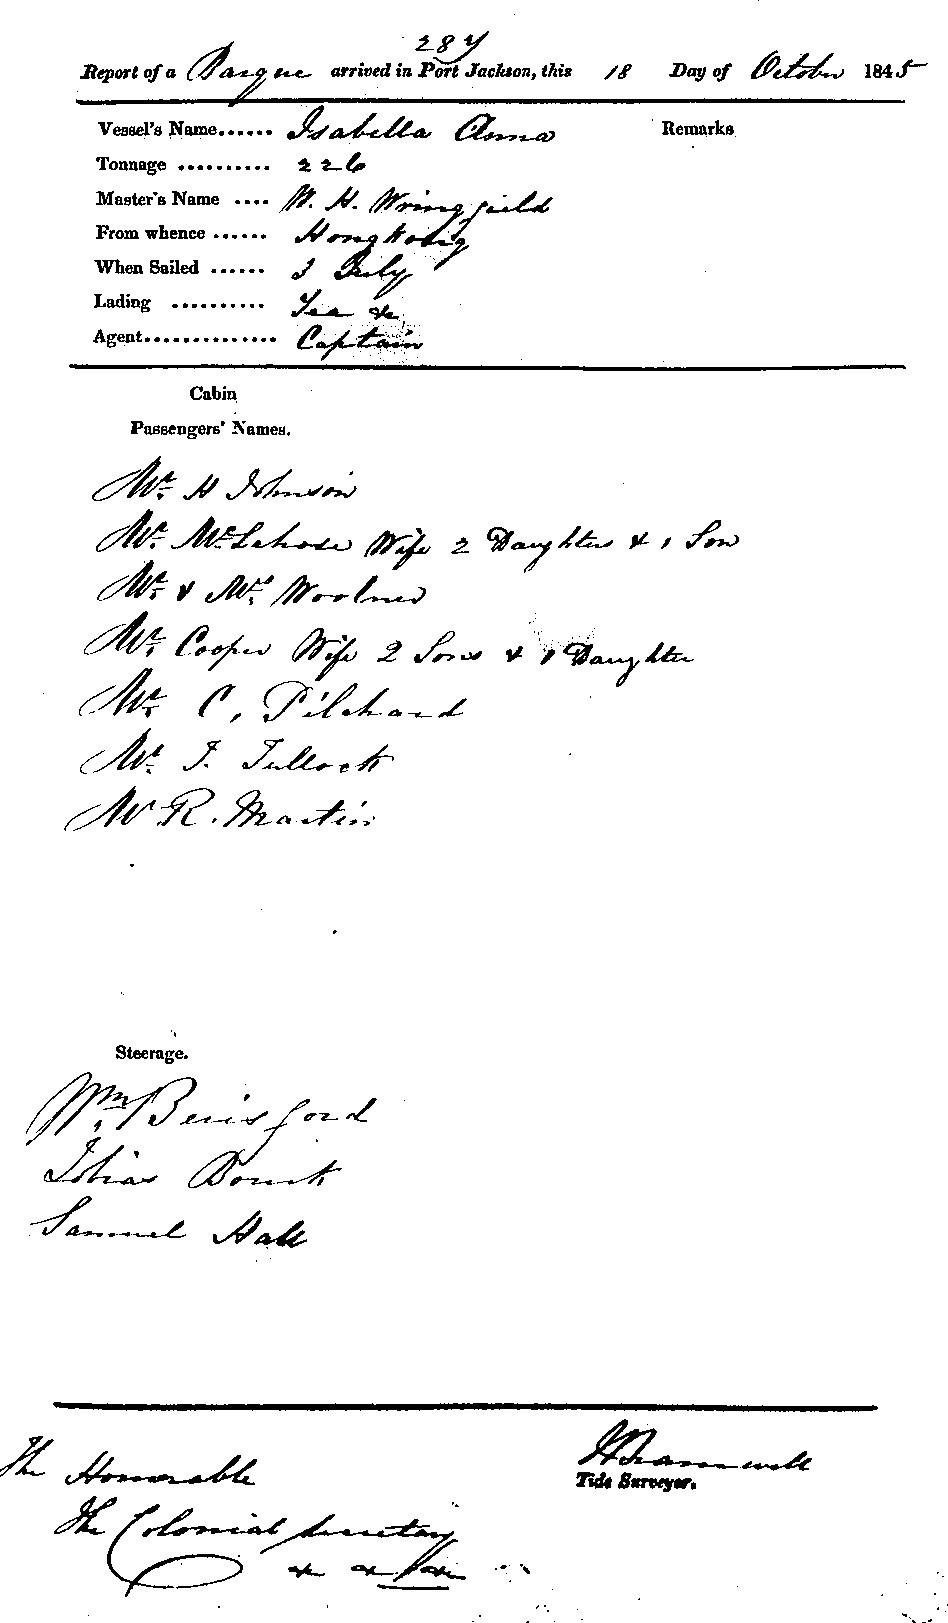 287
Report of a Barque arrived in Port Jackson, this 18 Day of October 1845
Vessel's Name...... Isabella Anna Remarks
Tonnage .......... 226
Master's Name .... W. H. Wringfield
From whence ...... Hongkong
When Sailed ...... 3 July
Lading .......... Tea &c
Agent.............. Captain
Cabin
Passengers' Names.
Mr. H Johnson
Mr. McLehose Wife 2 Daughters & 1 Son
Mr. & Mrs. Woolner
Mr. Cooper Wife 2 Sons & 1 Daughter
Mr. C. Pilchard
Mr. J. Tullock
Mr R. Martin
Steerage.
Wm Berisford
Tobias
Samuel Hall
The Honorable
The Colonial Secretary
&c &c &c
H Bramwell
Tide Surveyor.